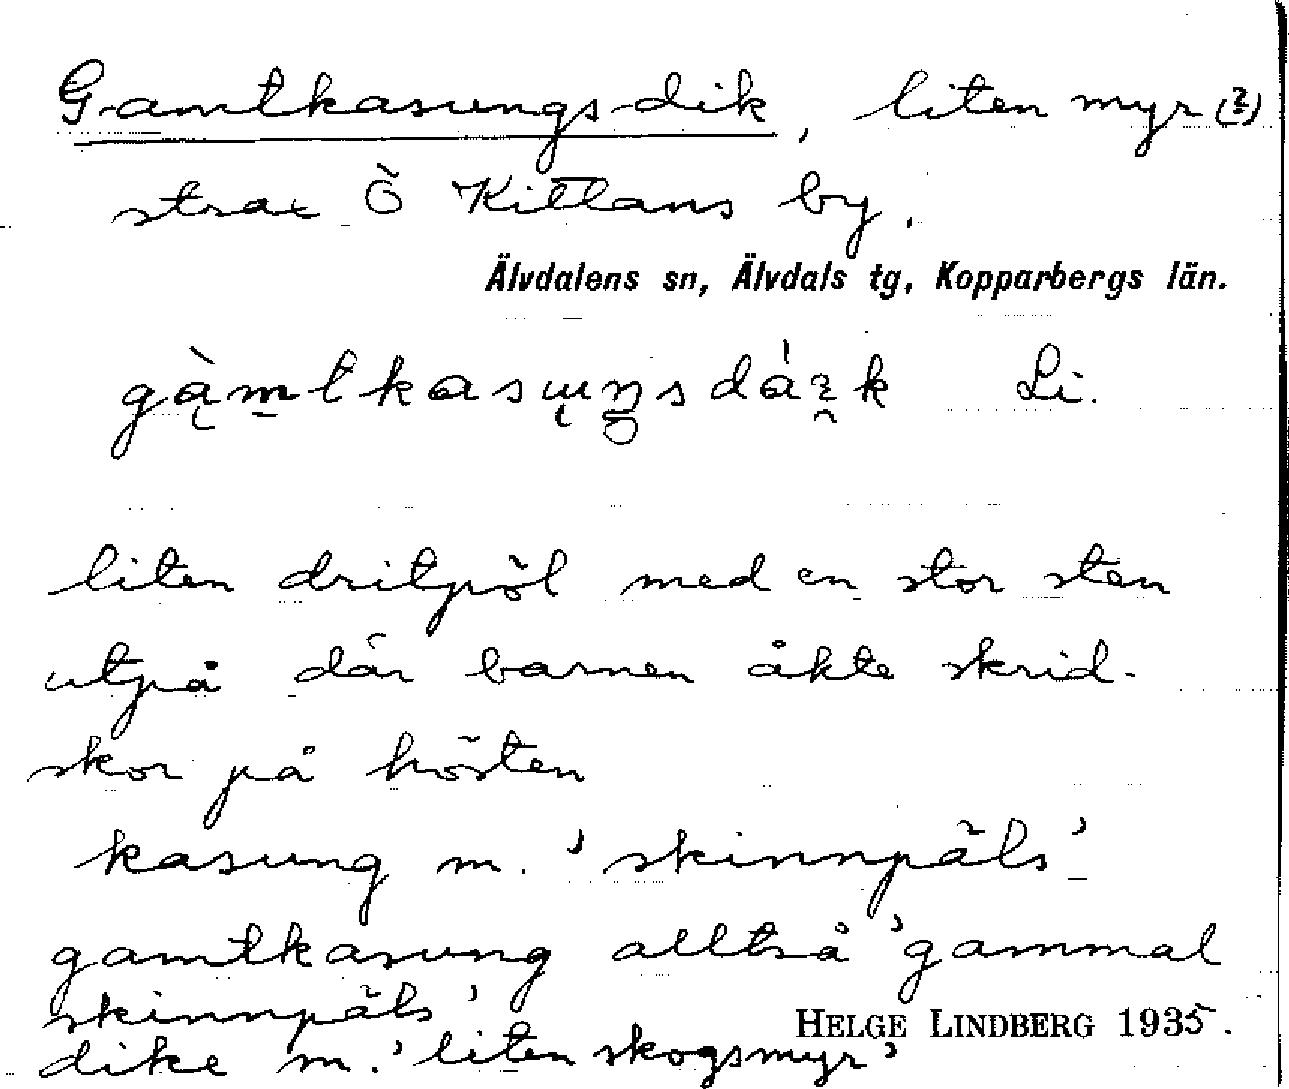 Gamtkasungs-dik, liten myr (?)
strax Ö Kittlans by.
Älvdalens sn, Älvdals tg, Kopparbergs län.
Li.
liten dritpöl med en stor sten
utpå där barnen åkte skrid-
skor på hösten
kasung m. 'skinnpäls'
gamtkasung alltså 'gammal
skinnpäls'
HELGE LINDBERG 1935.
dike m. 'liten skogsmyr'